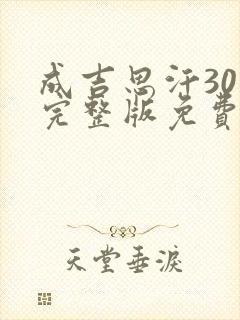 成吉思汗30
完整版免費
天堂垂淚